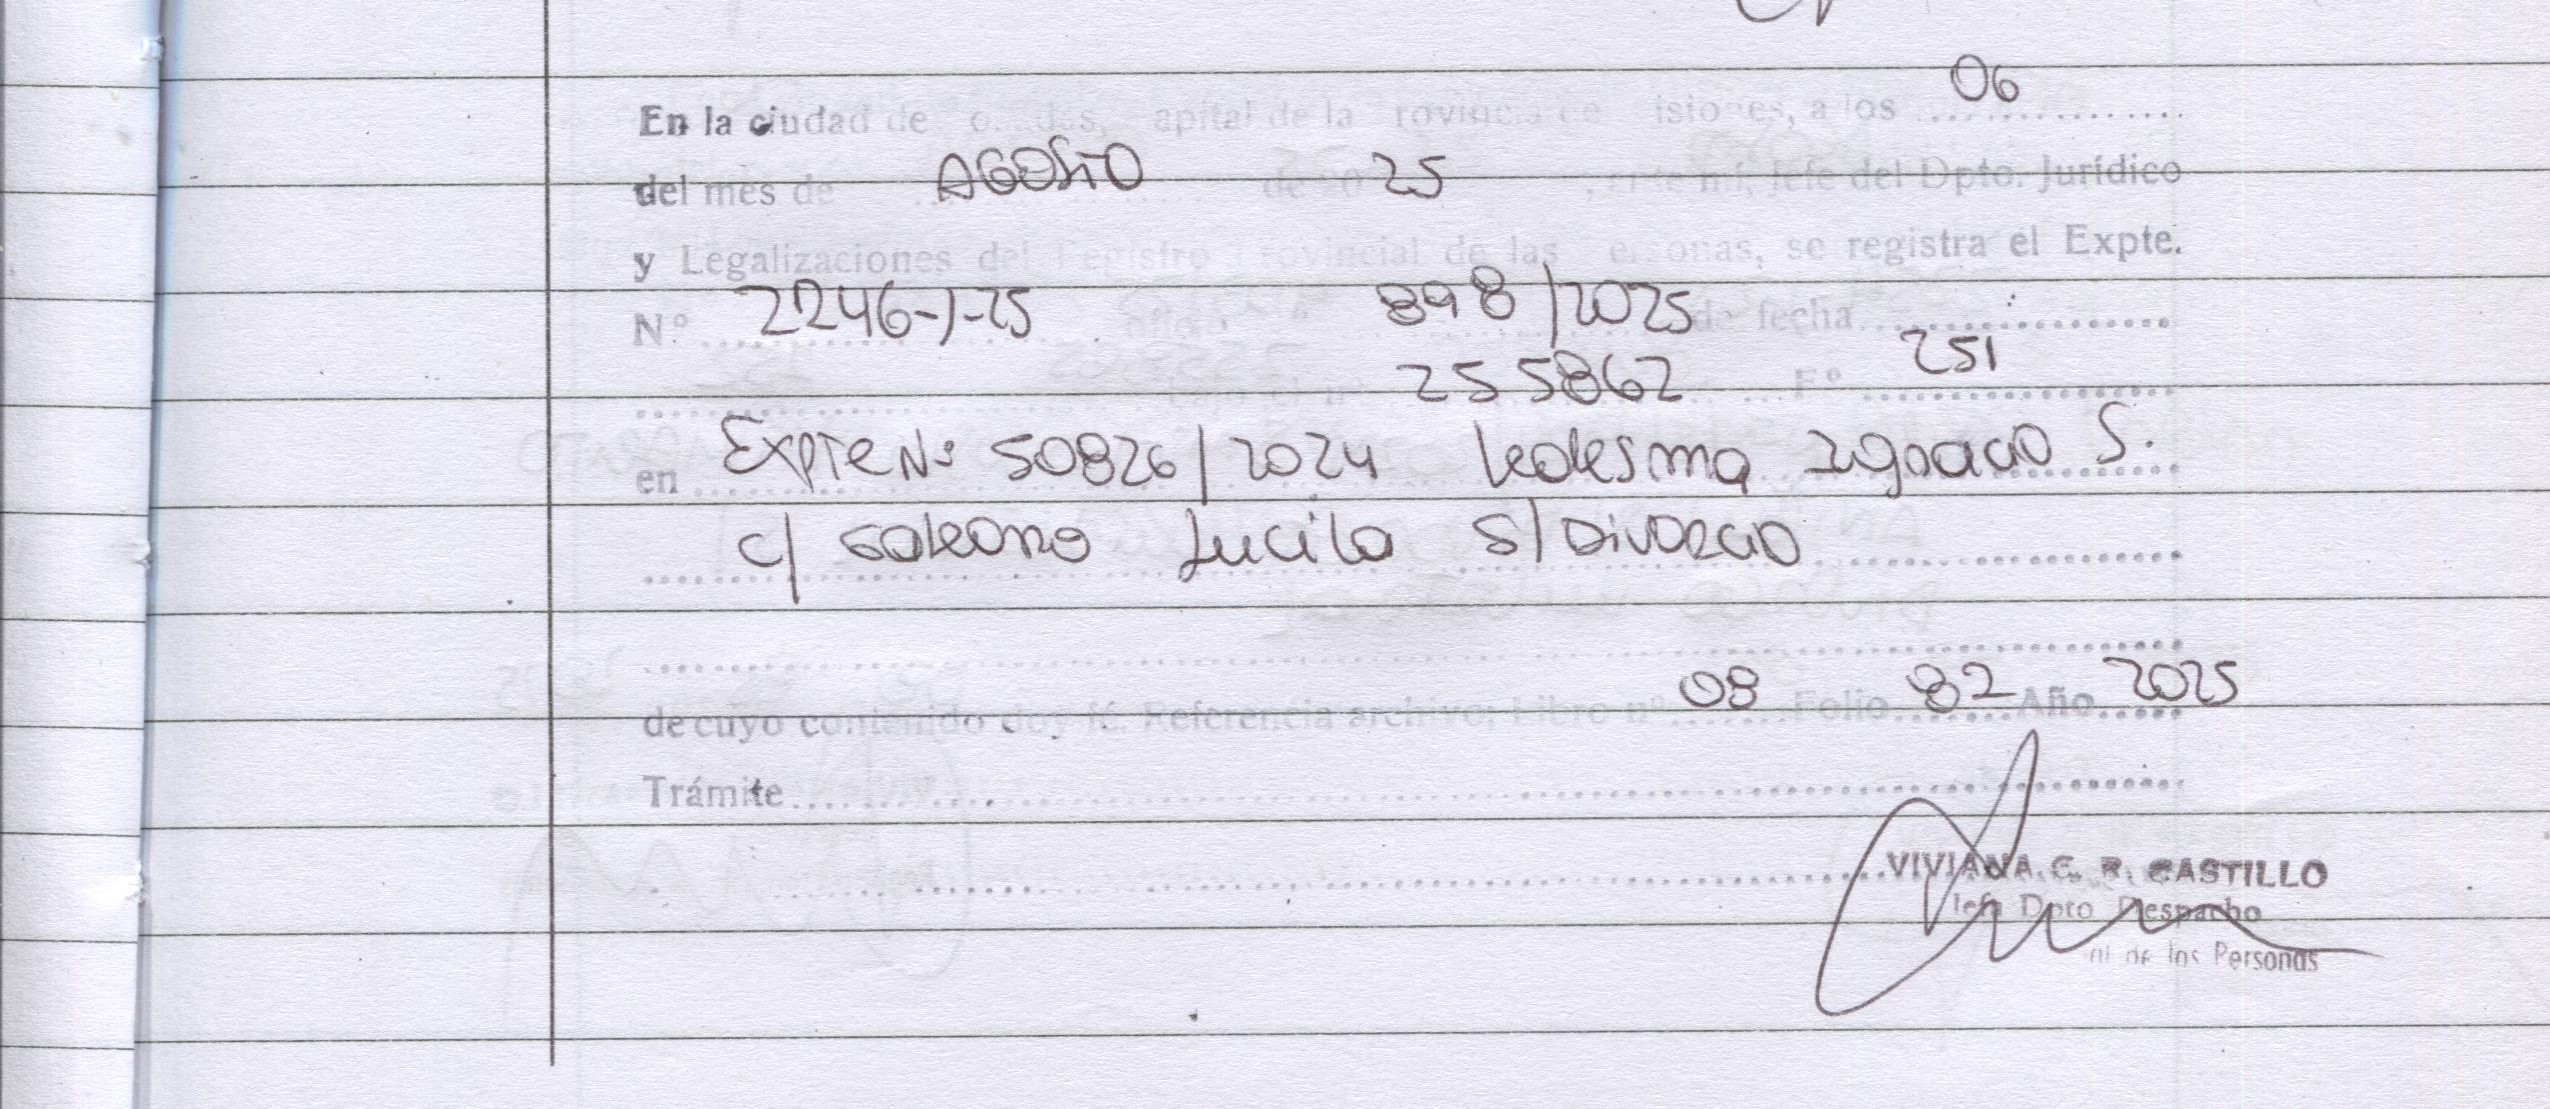 06
En la ciudad de Posadas, Capital de la Provincia de Misiones, a los ..................
del mes de AGOSTO de 20 25, ante mí, Jefe del Dpto. Jurídico
y Legalizaciones del Registro Provincial de las Personas, se registra el Expte.
Nº 2246-J-25 oficio 898/2025 de fecha..................
255862 Fº 251
en Expte Nº 50826/2024 Ledesma Ignacio S.
c/ Galeano Lucila S/ Divorcio
de cuyo contenido doy fé. Referencia archivo: Libro nº 08 Folio 82 Año 2025
Trámite..................
VIVIANA C. R. CASTILLO
Jefa Dpto Despacho
de las Personas